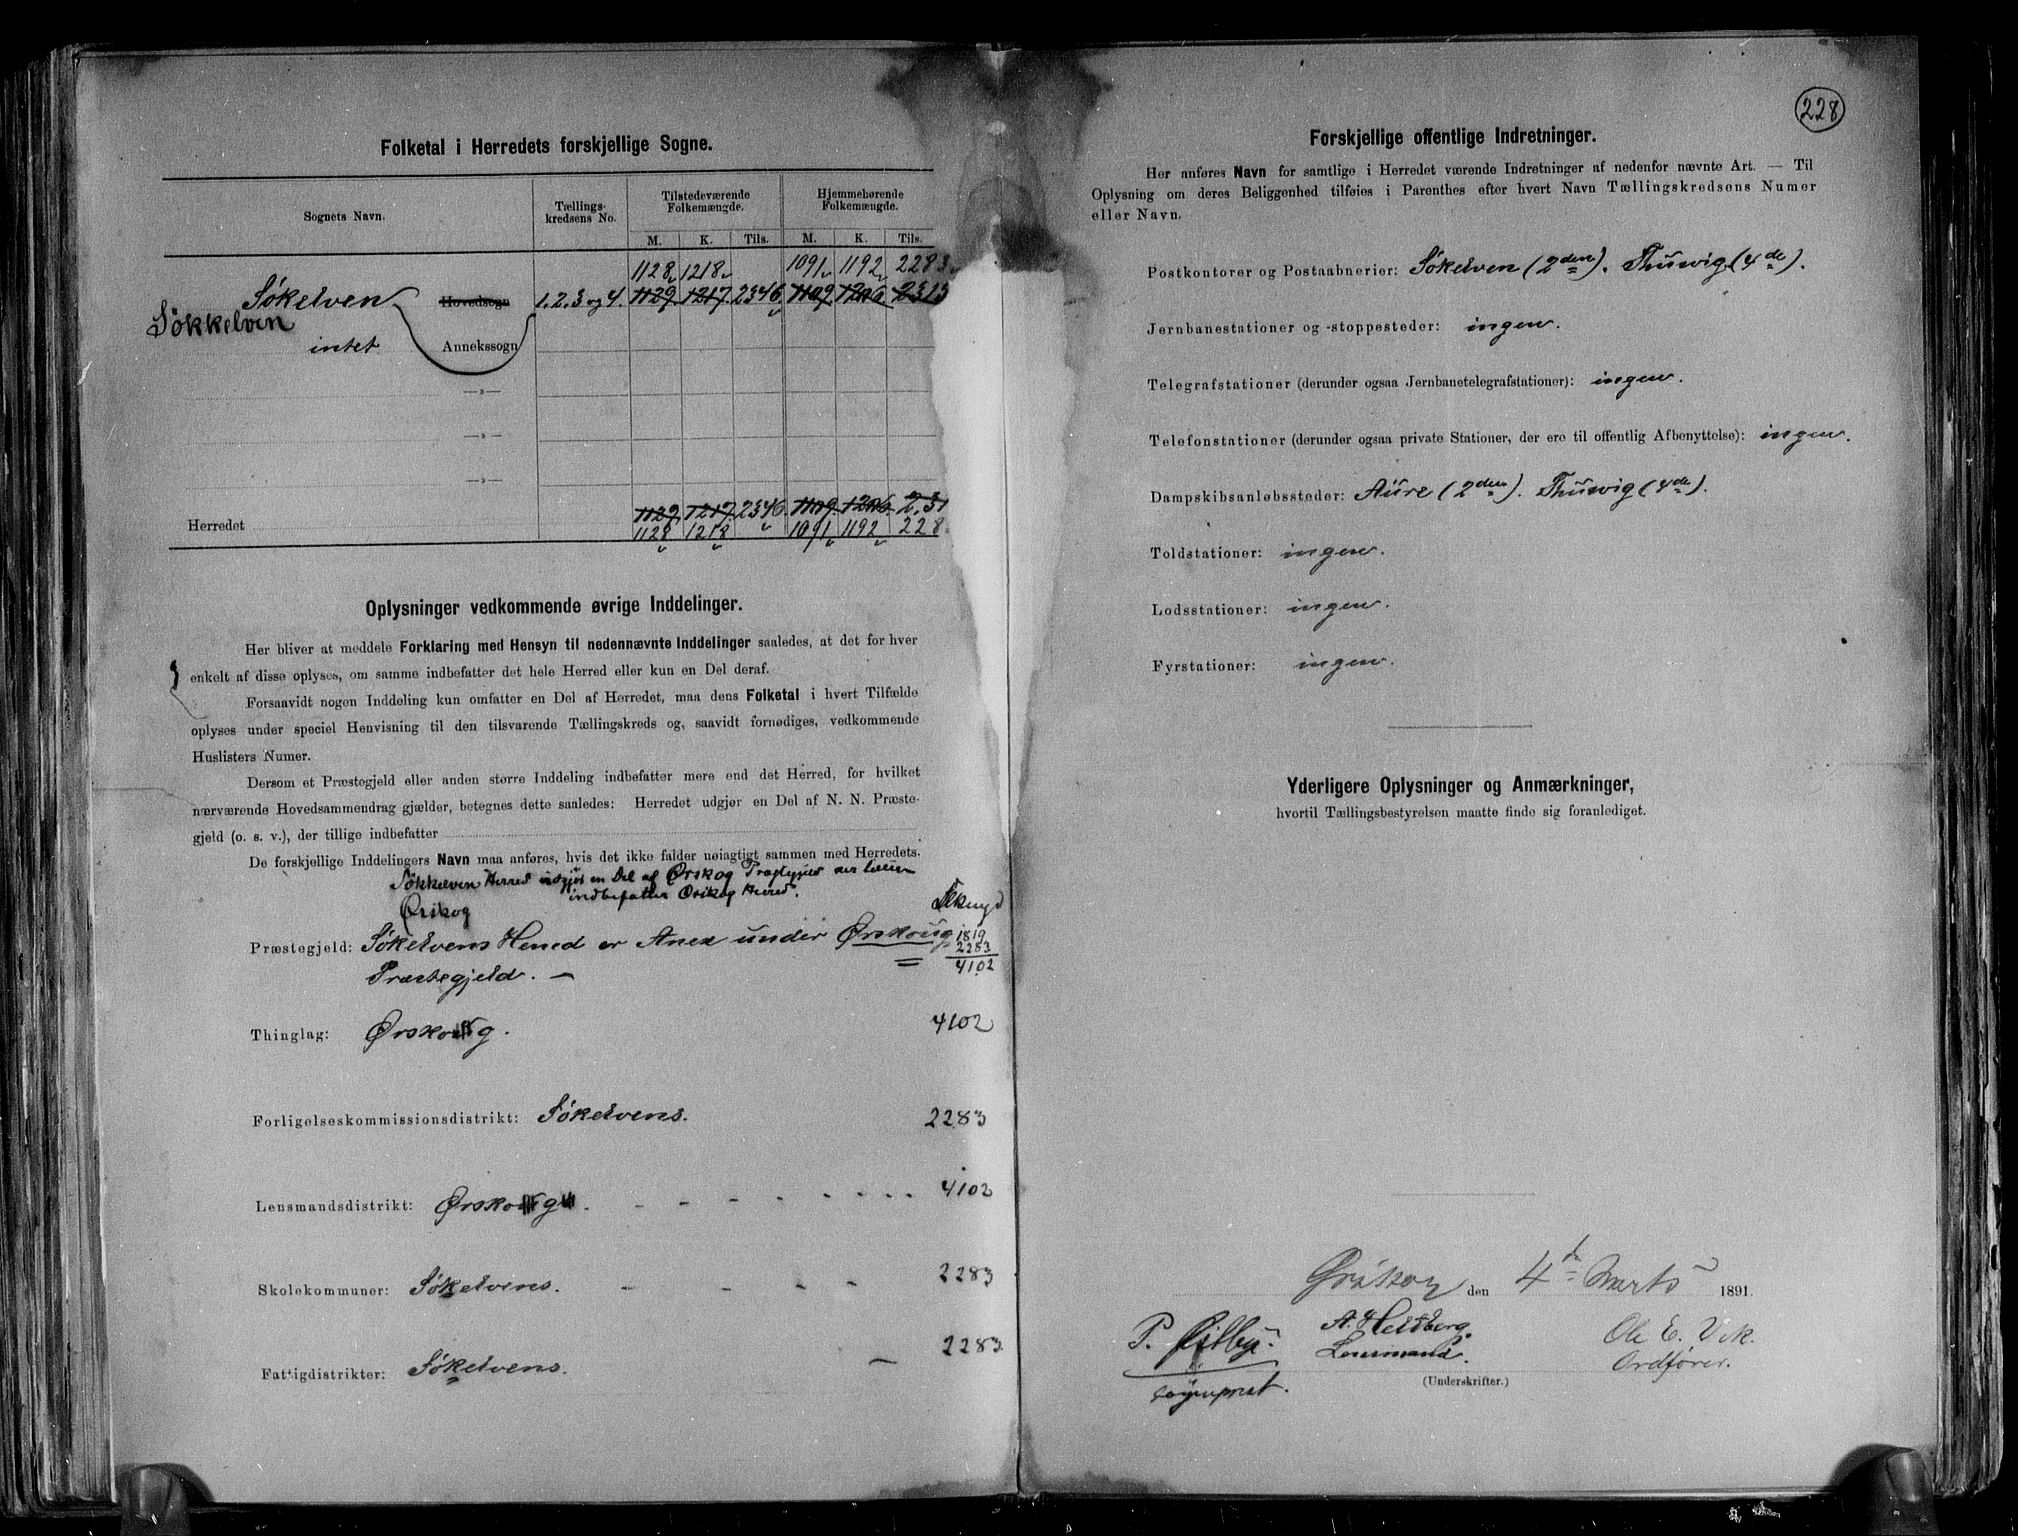 Folketal i Herredets forskjellige Sogne.
Sognets Navn.
Tællings-
kredsens No.
Tilstedeværende
Folkemængde.
Hjemmehørende
Folkemængde.
M. K. Tils. M. K. Tils.
1128 1218 1091 1192 2283
Søkelven Hovedsogn 1. 2. 3 og 4. 1129. 1217. 2346. 1109. 1206. 2313
Søkkelven
intet Annekssogn
—»—
—»—
—»—
1129. 1217. 2346. 1109. 1206. 2.31
Herredet
1128 1218 1091 1192 228
Oplysninger vedkommende øvrige Inddelinger.
Her bliver at meddele Forklaring med Hensyn til nedennævnte Inddelinger saaledes, at det for hver
enkelt af disse oplyses, om samme indbefatter det hele Herred eller kun en Del deraf.
Forsaavidt nogen Inddeling kun omfatter en Del af Herredet, maa dens Folketal i hvert Tilfælde
oplyses under speciel Henvisning til den tilsvarende Tællingskreds og, saavidt fornødiges, vedkommende
Huslisters Numer.
Dersom et Præstegjeld eller anden større Inddeling indbefatter mere end det Herred, for hvilket
nærværende Hovedsammendrag gjælder, betegnes dette saaledes: Herredet udgjør en Del af N. N. Præste-
gjeld (o. s. v.), der tillige indbefatter
De forskjellige Inddelingers Navn maa anføres, hvis det ikke falder nøiagtigt sammen med Herredets.
Søkkelven Herred udgjør en Del af Ørskog Præstegjeld der tillige
indbefatter Ørskog Herred.
Ørskog
Præstegjeld: Søkelvens Herred er Anex under Ørskoug 1819
2283
Præstegjeld. — 4102
Thinglag: Ørskog. 4102
Forligelseskommissionsdistrikt: Søkelvens. 2283
Lensmandsdistrikt: Ørskog. 4102
Skolekommuner: Søkelvens. 2283
Fattigdistrikter: Søkelvens. 2283
228
Forskjellige offentlige Indretninger.
Her anføres Navn for samtlige i Herredet værende Indretninger af nedenfor nævnte Art. — Til
Oplysning om deres Beliggenhed tilføies i Parenthes efter hvert Navn Tællingskredsens Numer
eller Navn.
Postkontorer og Postaabnerier: Søkelven (2den). Thuvig (4de).
Jernbanestationer og -stoppesteder: ingen.
Telegrafstationer (derunder ogsaa Jernbanetelegrafstationer): ingen.
Telefonstationer (derunder ogsaa private Stationer, der ere til offentlig Afbenyttelse): ingen.
Dampskibsanløbssteder: Aure (2den). Thuvig (4de).
Toldstationer: ingen.
Lodsstationer: ingen.
Fyrstationer: ingen.
Yderligere Oplysninger og Anmærkninger,
hvortil Tællingsbestyrelsen maatte finde sig foranlediget.
Ørskog den 4de Marts 1891.
A. Heldberg. Ole E. Vik.
Lensmand. Ordfører.
sogneprest.
(Underskrifter.)